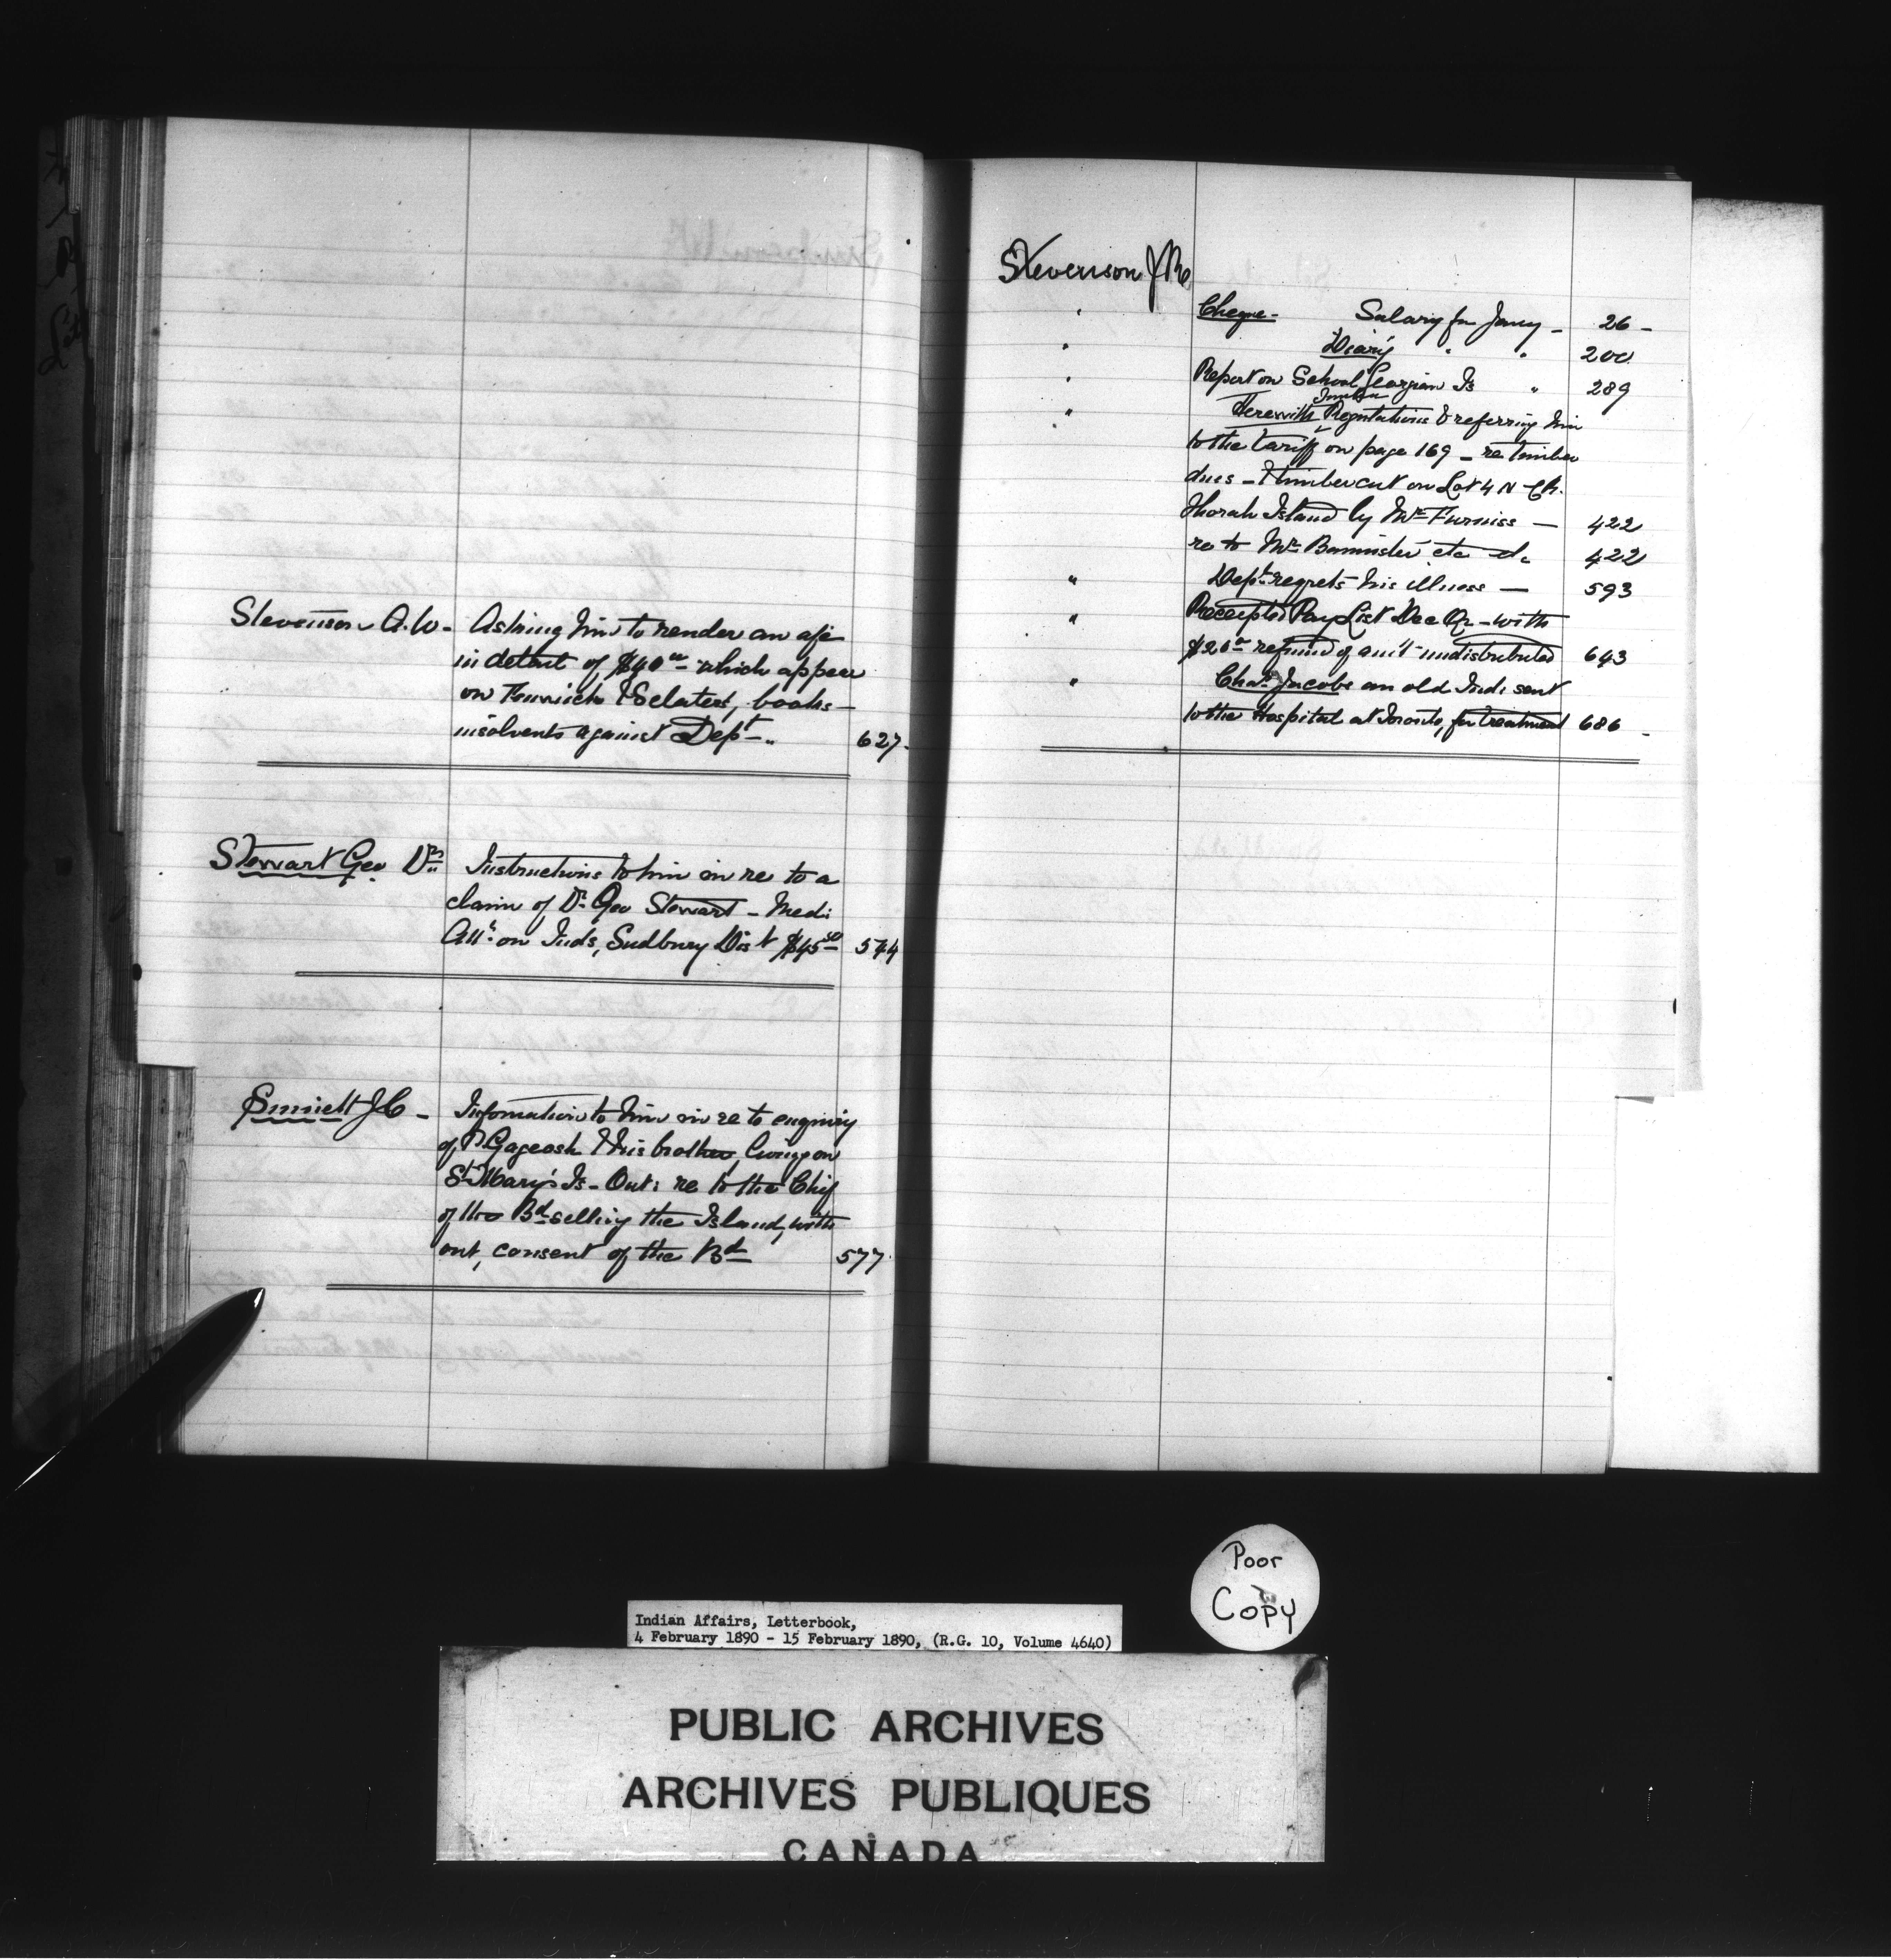 Stevenson A.W. - Asking him to render an a/c
in detail of $40.00 which appear
on Fenwick & Sclater, books -
insolvents against Dept - 627.
Stewart Geo Dr. Instructions to him in re to a
claim of Dr. Geo Stewart - Medi:
Att: on Inds, Sudbury Dist $45.50 544
J C - Information to him in re to enquiry
of P. Gageosh & his brother, living on
St Mary's Is - Ont: re to the Chief
of the Bd selling the Island, with
out, consent of the Bd 577.
Stevenson J
" Cheque - Salary for Jany - 26 -
" Diary " " 200
" Report on School Georgian Is " 289
" Herewith Timber Regulations & referring him
to the tariff on page 169 - re timber
dues - & timber cut on Lot 4 N
Thorah Island by Mr Furniss - 422
re to Mr Bannister etc etc 422
" Dept regrets his illness - 593
" Receipted Pay List Dec Qr - with
$20.00 refund of am't undistributed 643
" Chas Jacobs an old Ind: sent
to the Hospital at Toronto, for treatment 686 -
Poor
Copy
Indian Affairs, Letterbook,
4 February 1890 - 15 February 1890, (R.G. 10, Volume 4640)
PUBLIC ARCHIVES
ARCHIVES PUBLIQUES
CANADA